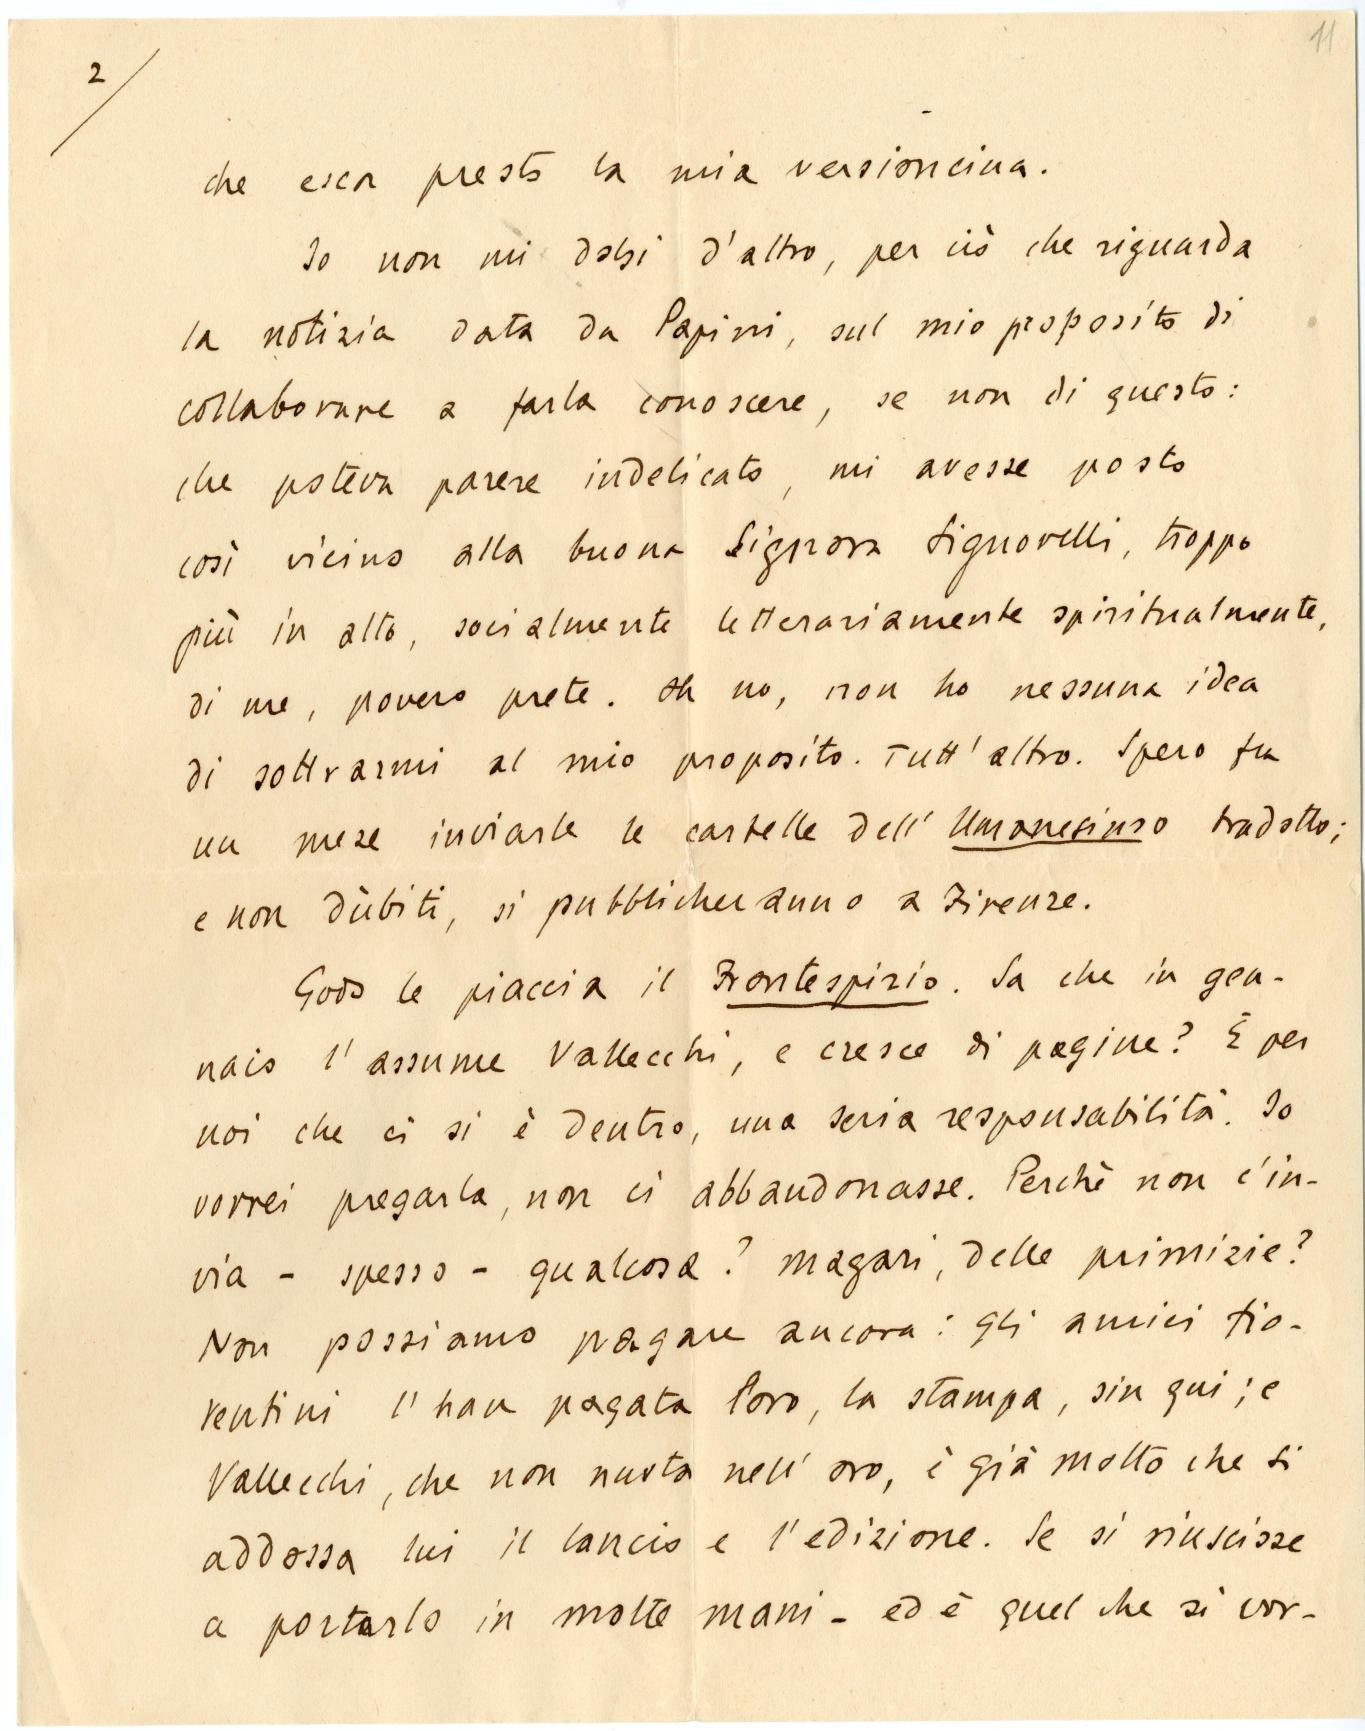 11
2
che esca presto la mia versioncina.
Io non mi dolsi d'altro, per ciò che riguarda
la notizia data da Papini, sul mio proposito di
collaborare a farla conoscere, se non di questo:
che poteva parere indelicato, mi avesse posto
così vicino alla buona Signora Signorelli, troppo
più in alto, socialmente letterariamente spiritualmente,
di me, povero prete. Oh no, non ho nessuna idea
di sottrarmi al mio proposito. Tutt'altro. Spero fra
un mese inviarle le cartelle dell' Umanesimo tradotto;
e non dùbiti, si pubblicheranno a Firenze.
Godo le piaccia il Frontespizio. Sa che in gen-
naio l'assume Vallecchi, e cresce di pagine? È per
noi che ci si è dentro, una seria responsabilità. Io
vorrei pregarla, non ci abbandonasse. Perchè non c'in-
via - spesso - qualcosa? Magari, delle primizie?
Non possiamo pagare ancora: gli amici fio-
rentini l'han pagata loro, la stampa, sin qui; e
Vallecchi, che non nuota nell'oro, è già molto che si
addossa lui il lancio e l'edizione. Se si riuscisse
a portarlo in molte mani - ed è quel che si vor-